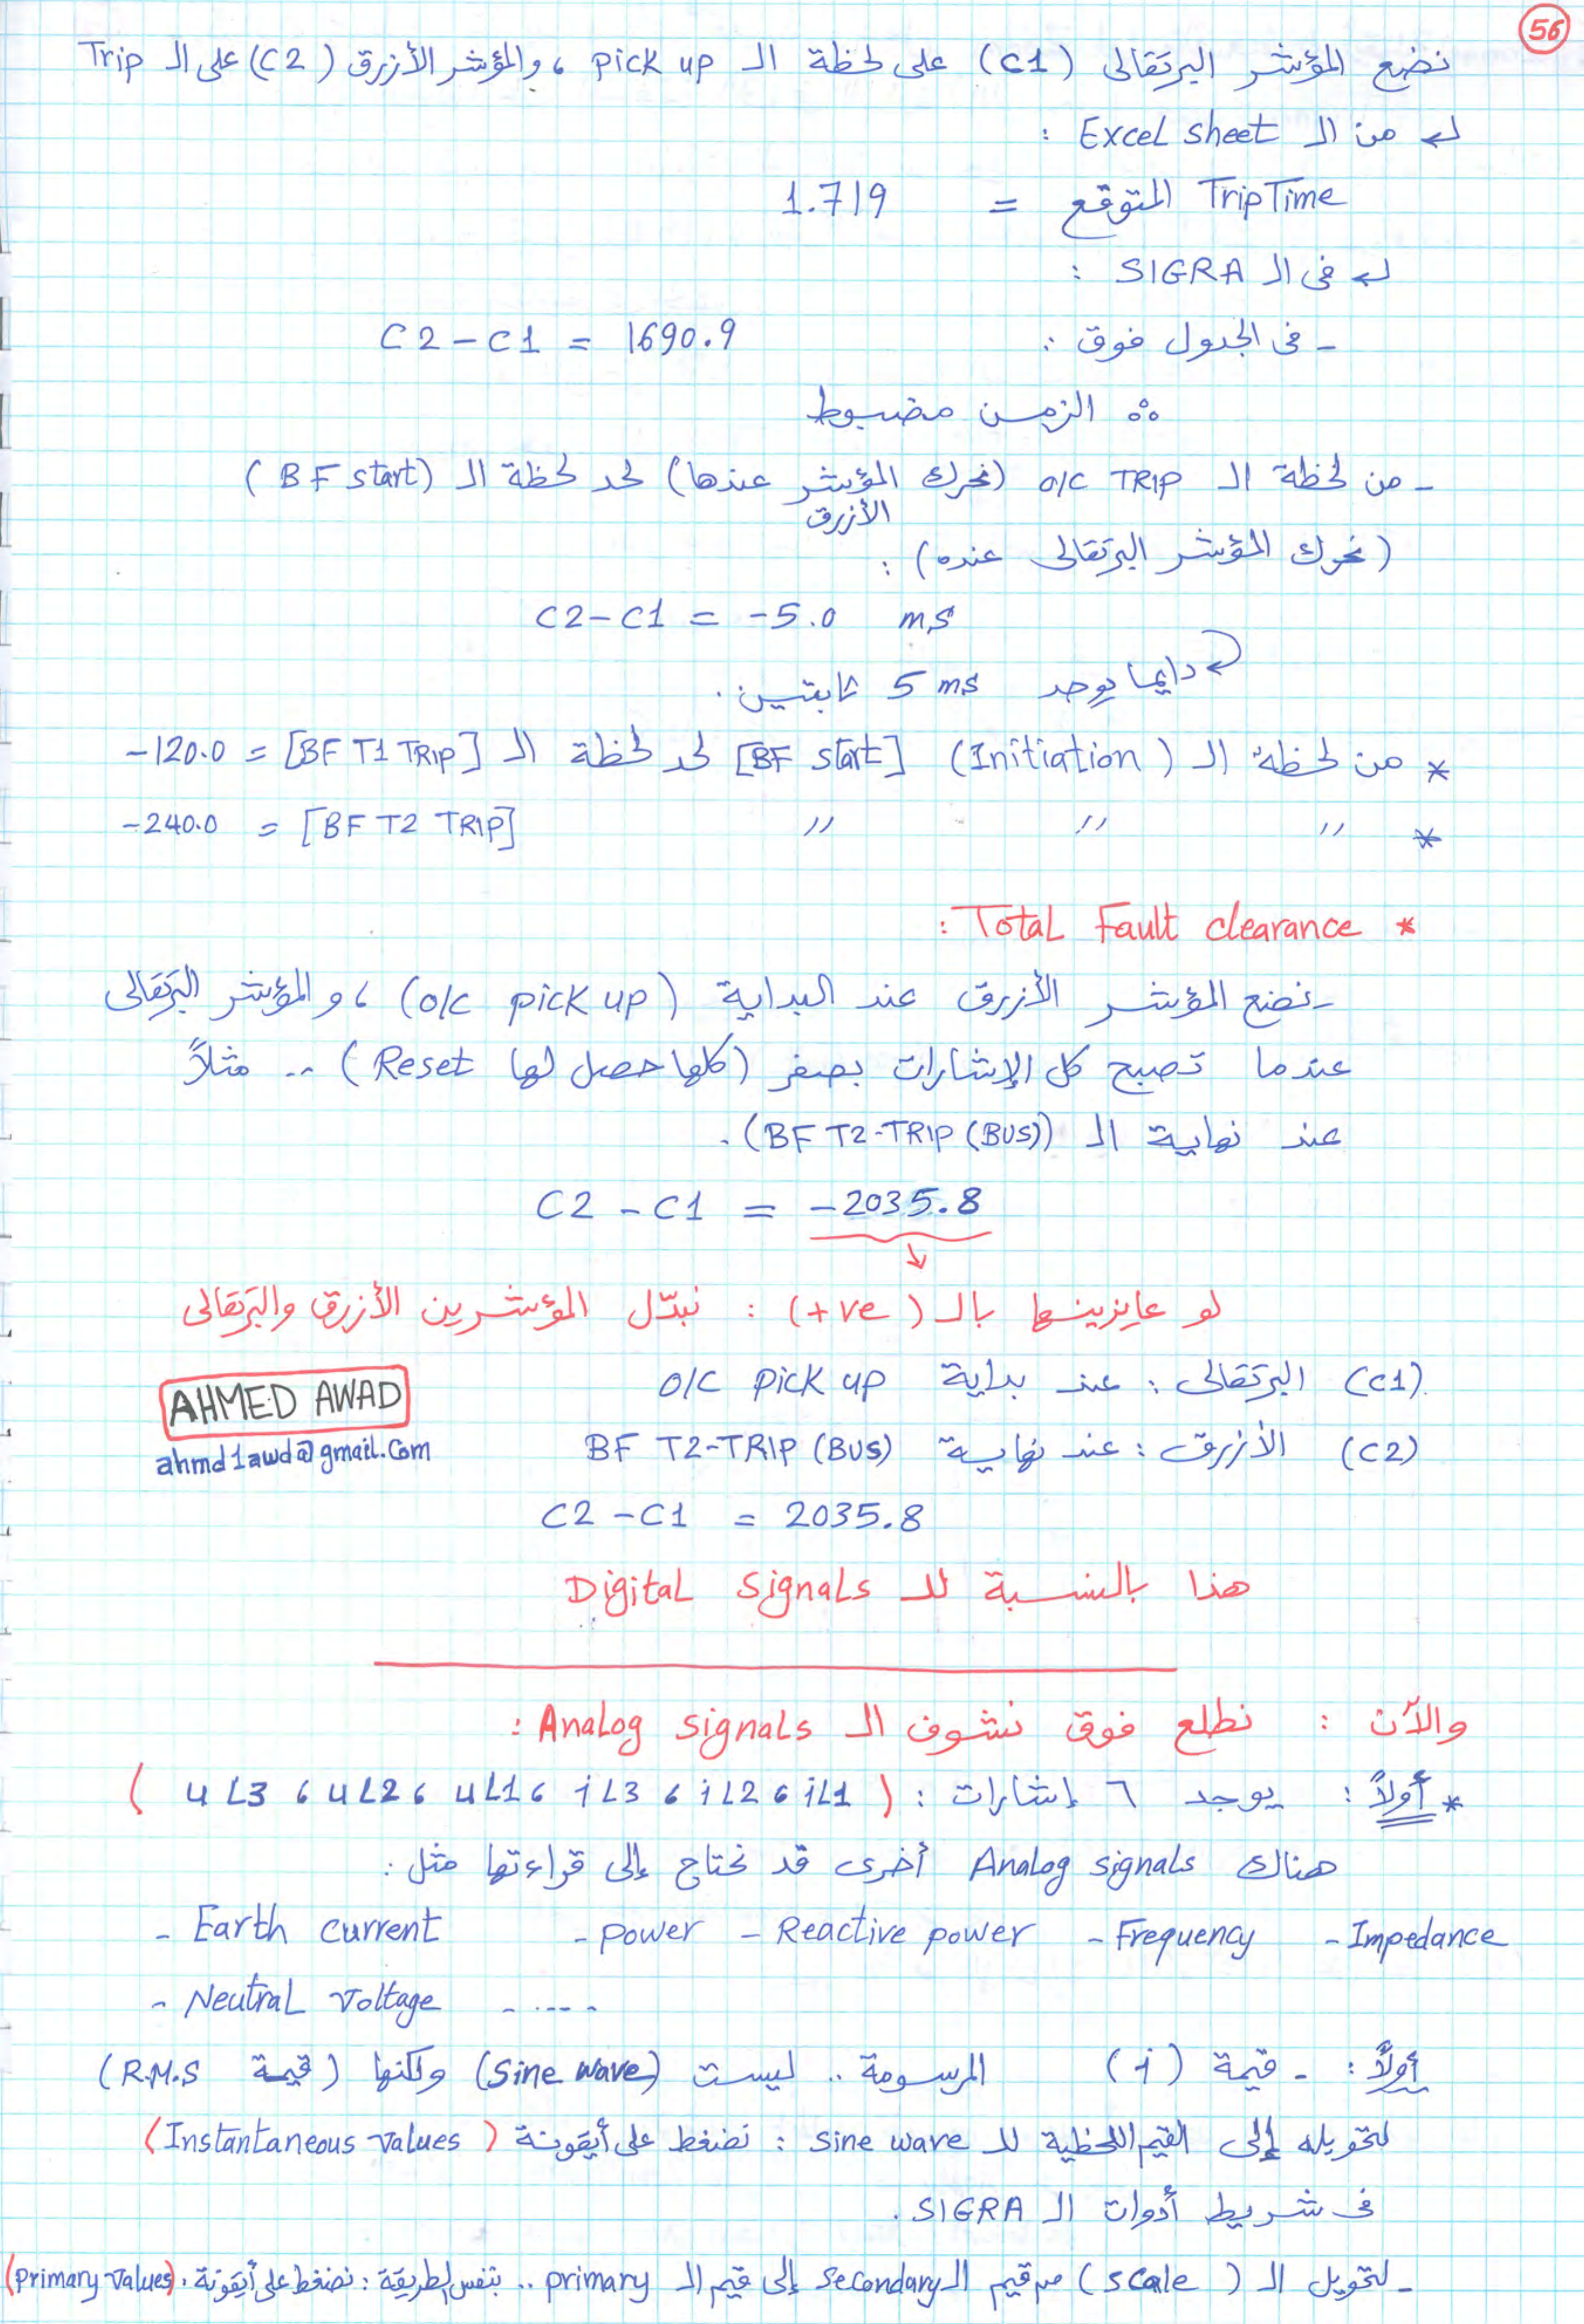 56
نضع المؤشر البرتقالى (C1) على لحظة الـ pick up ، والمؤشر الأزرق (C2) على الـ Trip
↵ من الـ Excel sheet :
TripTime المتوقع = 1.719
↵ فى الـ SIGRA :
- فى الجدول فوق : C2 - C1 = 1690.9
∴ الزمن مضبوط
- من لحظة الـ O/C TRIP (نحرك المؤشر الأزرق عندها) لحد لحظة الـ (BF start)
(نحرك المؤشر البرتقالى عنده) :
C2 - C1 = -5.0 ms
↵ دايما يوجد 5 ms ثابتين .
* من لحظة الـ (Initiation) [BF start] لحد لحظة الـ [BF T1 TRIP] = -120.0
* 〃 〃 〃 [BF T2 TRIP] = -240.0
* Total Fault clearance :
- نضع المؤشر الأزرق عند البداية (O/C pick up) ، والمؤشر البرتقالى
عندما تصبح كل الإشارات بصفر (كلها حصل لها Reset) .. مثلاً
عند نهاية الـ (BF T2-TRIP (BUS)) .
C2 - C1 = -2035.8
↓
لو عايزينها بالـ (+ve) : نبدّل المؤشرين الأزرق والبرتقالى
(C1) البرتقالى : عند بداية O/C pick up
AHMED AWAD
(C2) الأزرق : عند نهاية BF T2-TRIP (BUS)
ahmd1awd@gmail.com
C2 - C1 = 2035.8
هذا بالنسبة للـ Digital signals
والآن : نطلع فوق نشوف الـ Analog signals :
* أولاً : يوجد ٦ إشارات : (iL1 ، iL2 ، iL3 ، uL1 ، uL2 ، uL3)
هناك Analog signals أخرى قد نحتاج إلى قراءتها مثل :
- Earth current - power - Reactive power - Frequency - Impedance
- Neutral voltage - .... -
أولاً : - قيمة (i) المرسومة .. ليست (sine wave) ولكنها (قيمة R.M.S)
لتحويله إلى القيم اللحظية للـ sine wave : نضغط على أيقونة (Instantaneous values)
فى شريط أدوات الـ SIGRA .
- لتحويل الـ (scale) من قيم الـ secondary إلى قيم الـ primary .. بنفس الطريقة : نضغط على أيقونة . (primary values)